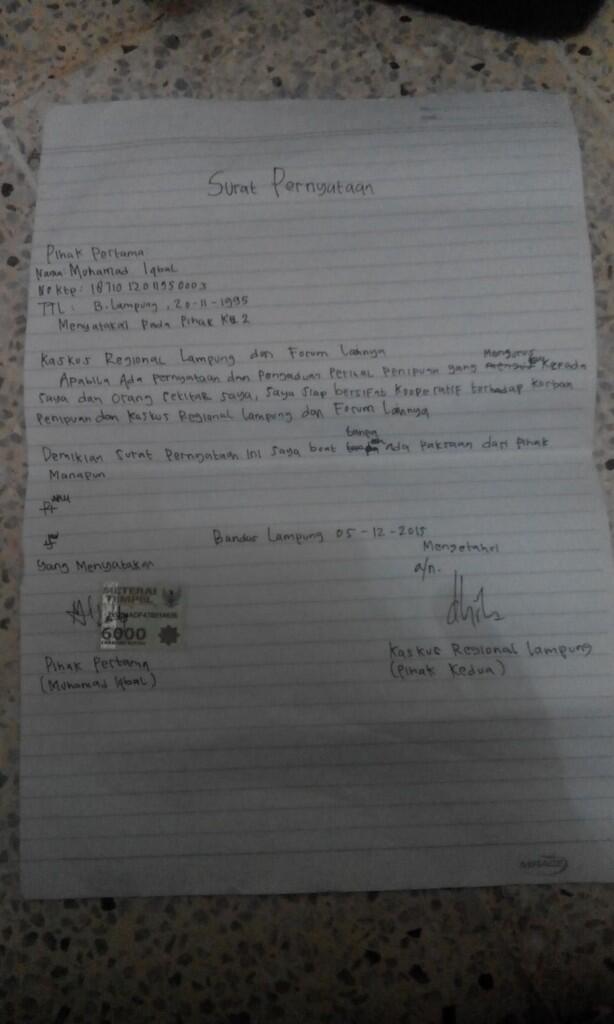 Surat Pernyataan
Pihak Pertama
Nama: Muhamad Iqbal
No Ktp: 1871012011950003
TTL : B. Lampung, 20-11-1995
Menyatakan Pada Pihak Ke 2
Kaskus Regional Lampung dan Forum Lainnya
Apabila Ada pernyataan dan pengaduan Perihal Penipuan yang Mengurus Kepada
Saya dan orang sekitar saya, saya siap bersifat kooperatif terhadap korban
Penipuan dan Kaskus Regional Lampung dan Forum Lainnya
Demikian Surat Pernyataan ini saya buat tanpa Ada Paksaan dari Pihak
Manapun
Bandar Lampung 05-12-2015
Yang Menyatakan
Mengetahui
a/n.
METERAI
TEMPEL
6000
Pihak Pertama
(Muhamad Iqbal)
Kaskus Regional Lampung
(Pihak Kedua)
MIRAGE